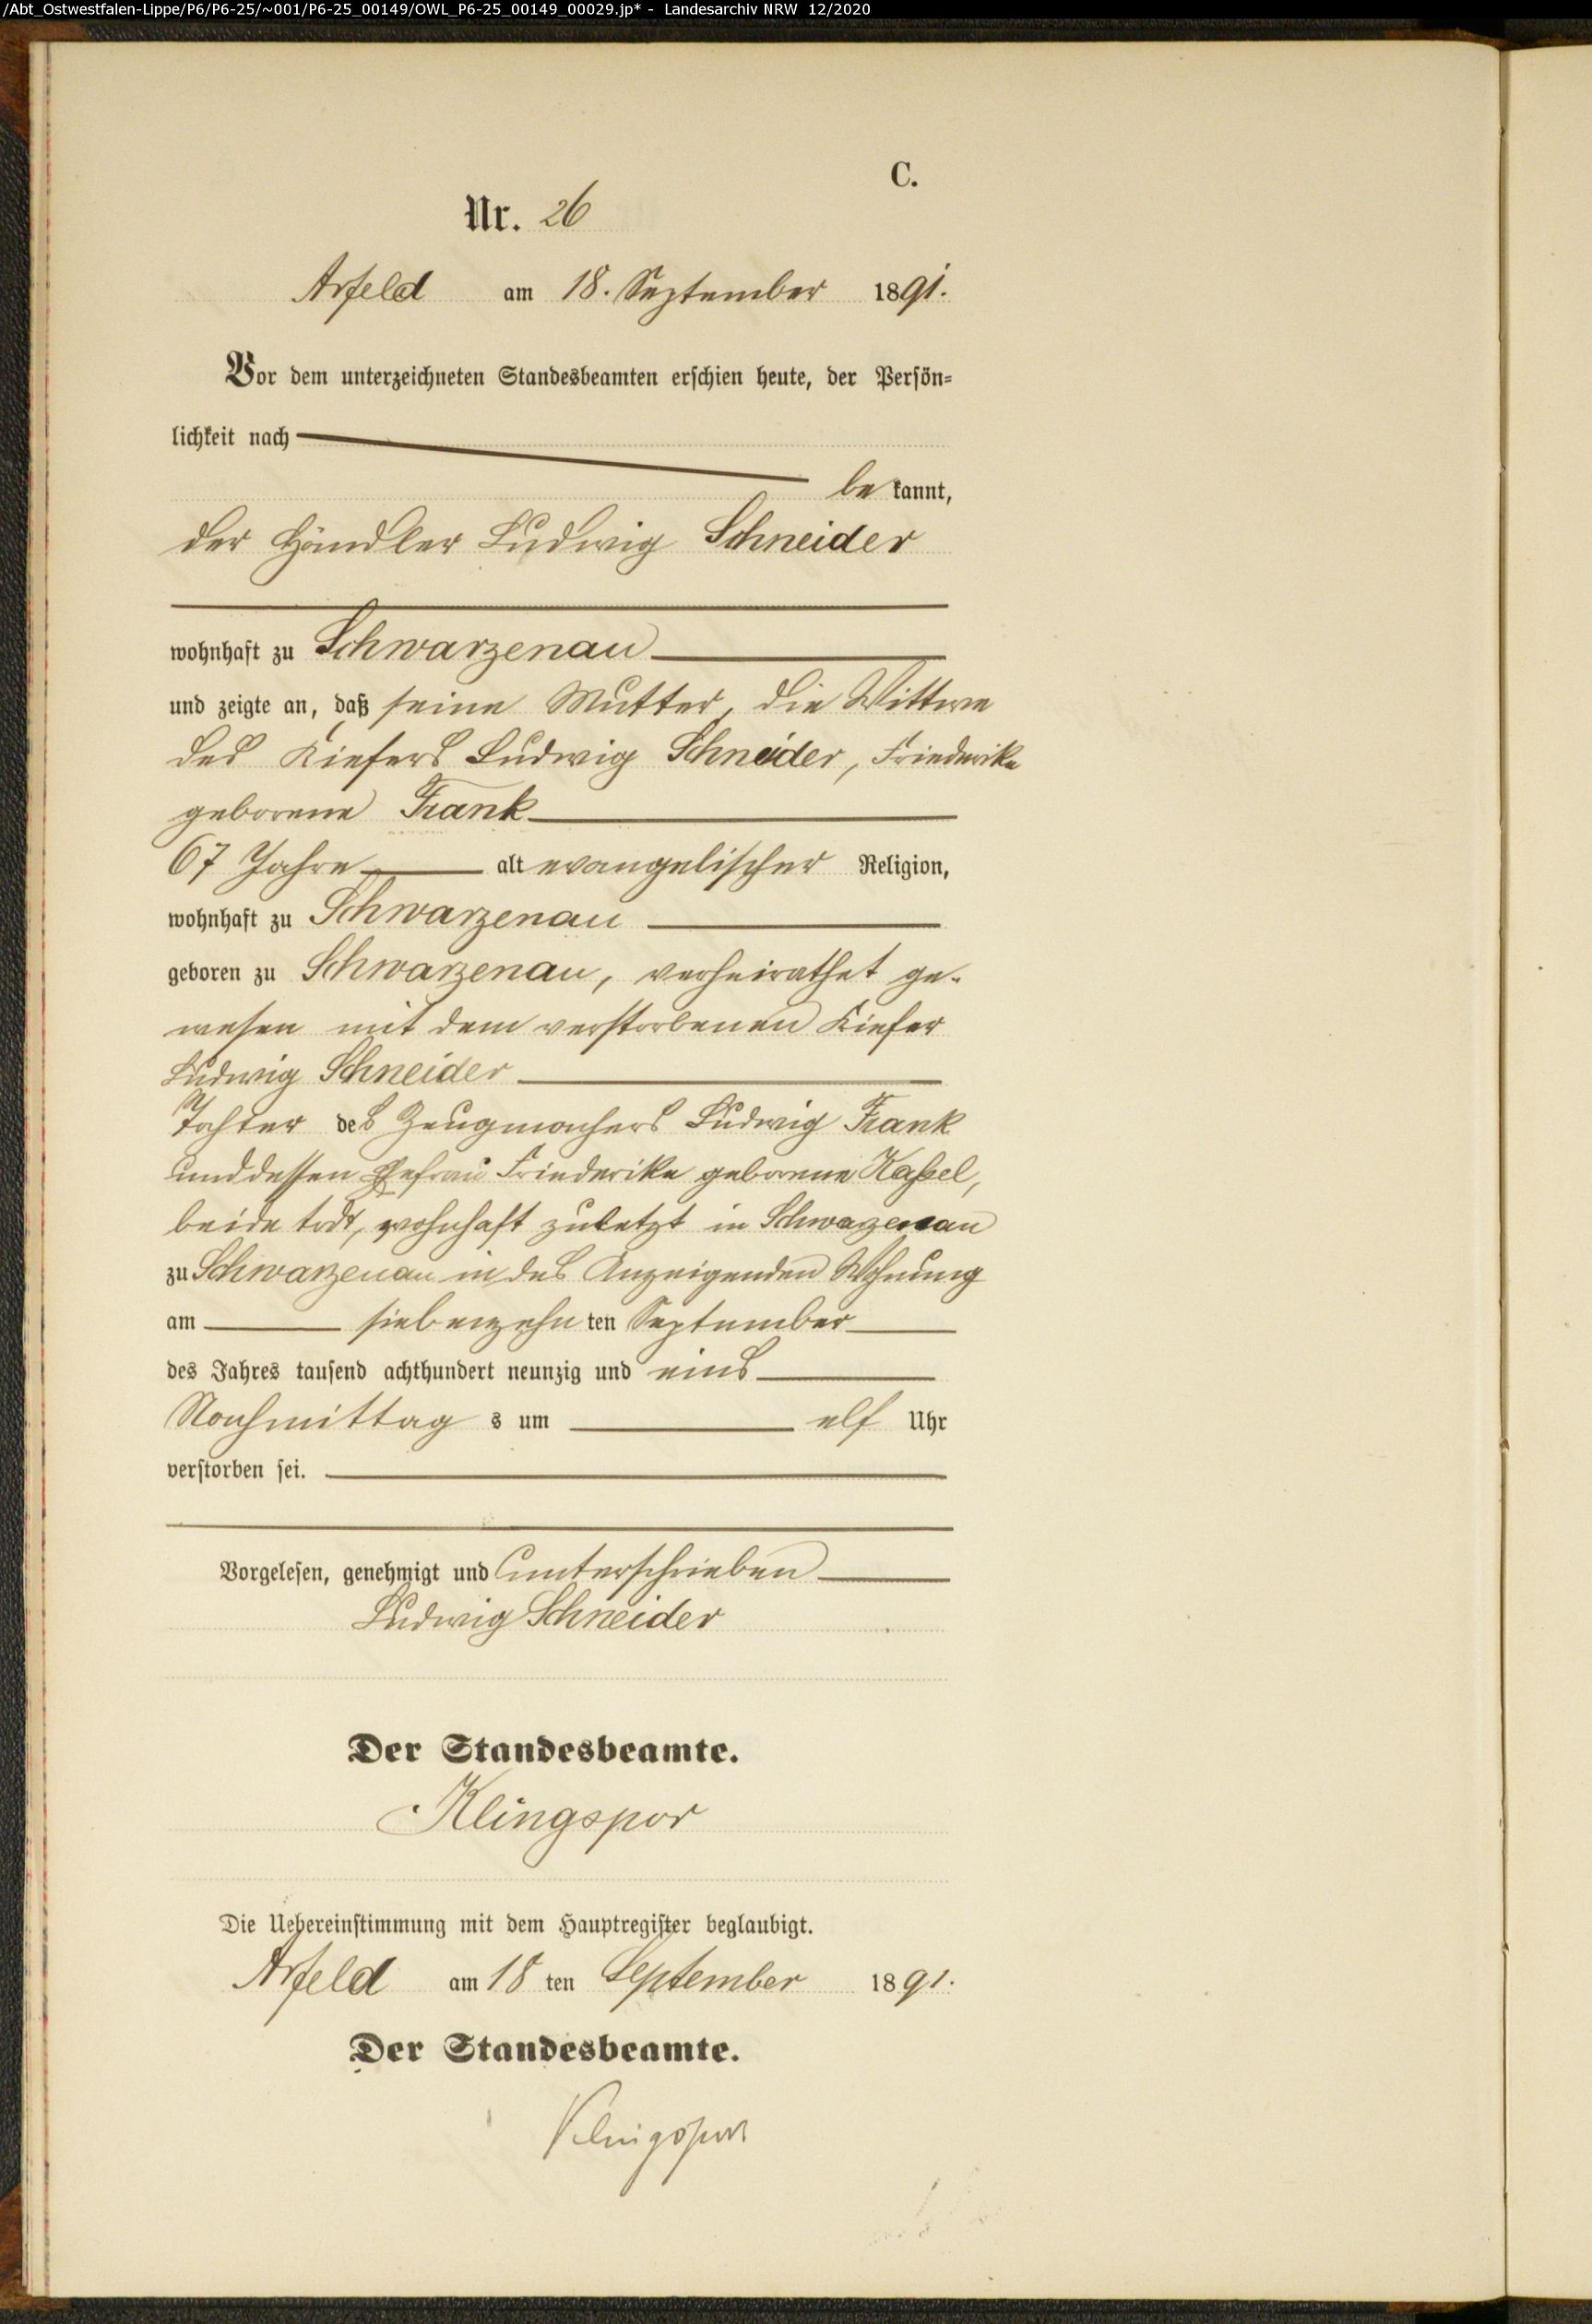 /Abt_Ostwestfalen-Lippe/P6/P6-25/~001/P6-25_00149/OWL_P6-25_00149_00029.jp* - Landesarchiv NRW 12/2020
C.
Nr. 26
Arfeld am 18. September 1891.
Vor dem unterzeichneten Standesbeamten erschien heute, der Persön=
lichkeit nach
be kannt,
der Händler Ludwig Schneider
wohnhaft zu Schwarzenau
und zeigte an, daß seine Mutter, die Wittwe
des Kiefers Ludwig Schneider, Friederike
geborene Frank
67 Jahre alt evangelischer Religion,
wohnhaft zu Schwarzenau
geboren zu Schwarzenau, verheirathet ge-
wesen mit dem verstorbenen Kiefer
Ludwig Schneider
Tochter des Zeugmachers Ludwig Frank
und dessen Ehefrau Friederike geborene Kaßel,
beide todt, wohnhaft zuletzt in Schwazenau
zu Schwarzenau in des Anzeigenden Wohnung
am siebenzehn ten September
des Jahres tausend achthundert neunzig und eins
Nachmittag s um elf Uhr
verstorben sei.
Vorgelesen, genehmigt und unterschrieben
Ludwig Schneider
Der Standesbeamte.
Klingspor
Die Uebereinstimmung mit dem Hauptregister beglaubigt.
Arfeld am 18 ten September 1891.
Der Standesbeamte.
Klingspor